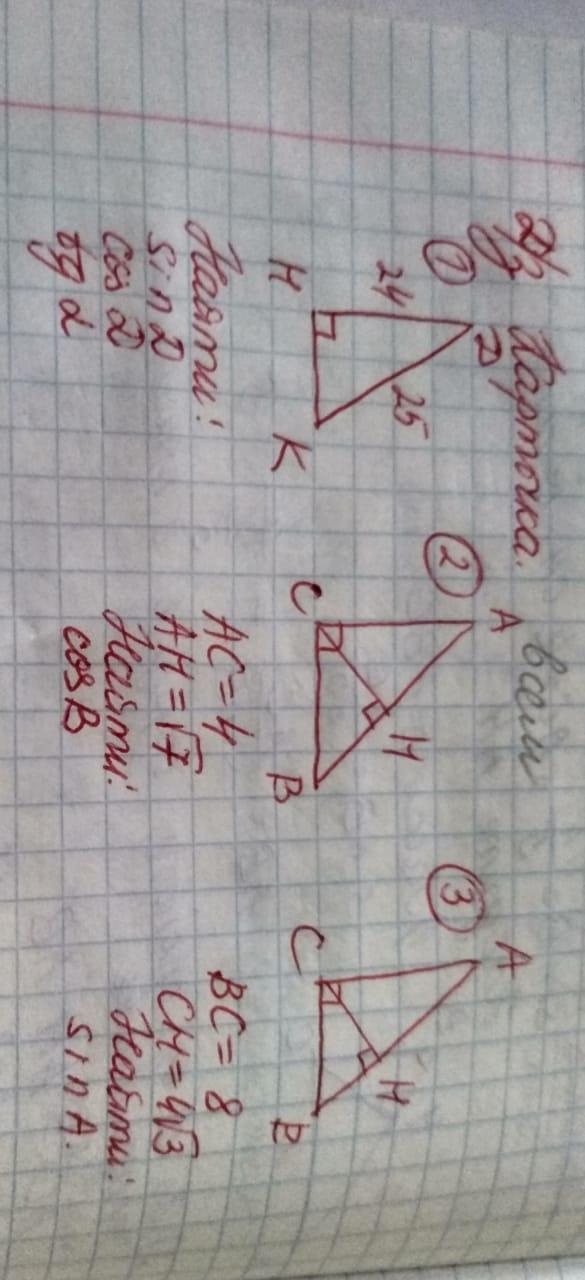 Д/з Карточка. всем
①
D
24
25
H
K
Найти:
sin D
cos D
tg D
②
A
C
H
B
AC = 4
AH = √7
Найти:
cos B
③
A
C
H
B
BC = 8
CH = 4√3
Найти:
sin A.